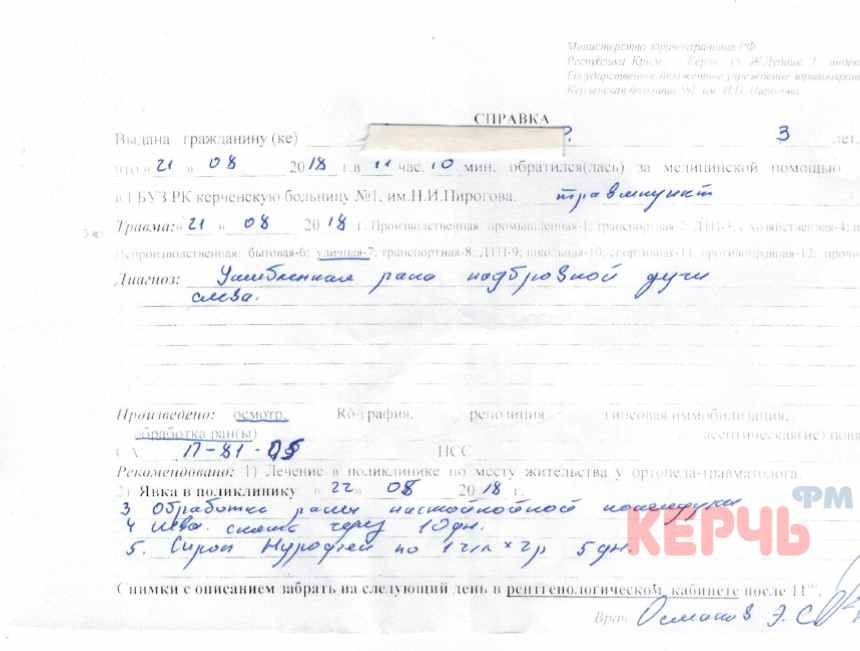 Министерство здравоохранения РФ
Республика Крым, г. Керчь, ул. Ж.Дудник, 1, индекс
Государственное бюджетное учреждение здравоохранения
Керченская больница №1 им. Н.И. Пирогова
СПРАВКА
Выдана гражданину (ке) 3 лет,
что « 21 » 08 2018 г.в 11 час. 10 мин. обратился(лась) за медицинской помощью
в ГБУЗ РК керченскую больницу №1, им.Н.И.Пирогова. травмпункт
Травма: « 21 » 08 2018 г. Производственная: промышленная-1; транспортная-2; ДТП-3; с/хозяйственная-4;
Непроизводственная: бытовая-6; уличная-7; транспортная-8; ДТП-9; школьная-10; спортивная-11; противоправная-12; прочие
Диагноз: Ушибленная рана надбровной дуги
слева.
Произведено: осмотр, Rо-графия, репозиция, гипсовая иммобилизация,
обработка ран(ы) асептическая(ие) повя
П-81-05 ПСС
Рекомендовано: 1) Лечение в поликлинике по месту жительства у ортопеда-травматолога.
2) Явка в поликлинику « 22 » 08 2018 г.
3 Обработка раны настойкой календулы
4 Швы снять через 10 дн.
5. Сироп Нурофен по 1 чл × 2р 5 дн.
КЕРЧЬ ФМ
Снимки с описанием забрать на следующий день в рентгенологическом кабинете после 11⁰⁰.
Врач Османов Э.С.